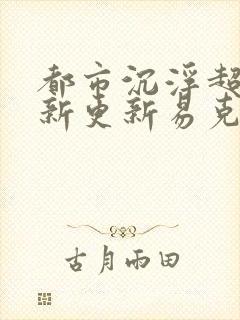 都市沉浮超
新更新易克
古月雨田